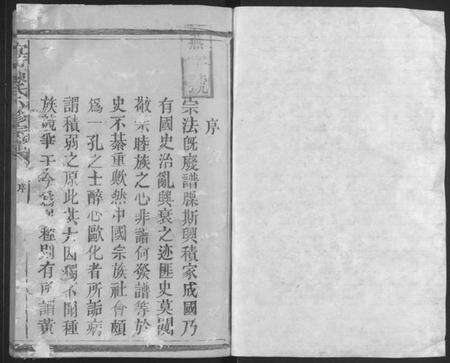 序
宗法既廢譜牒斯興積家成國乃
有國史治亂興衰之迹匪史莫覩
敬宗睦族之心非譜何發譜等於
史不綦重歟然中國宗族社會頗
爲一孔之士醉心歐化者所詬病
謂積弱之原此其大因獨不聞種
族競爭 種則有所謂黃